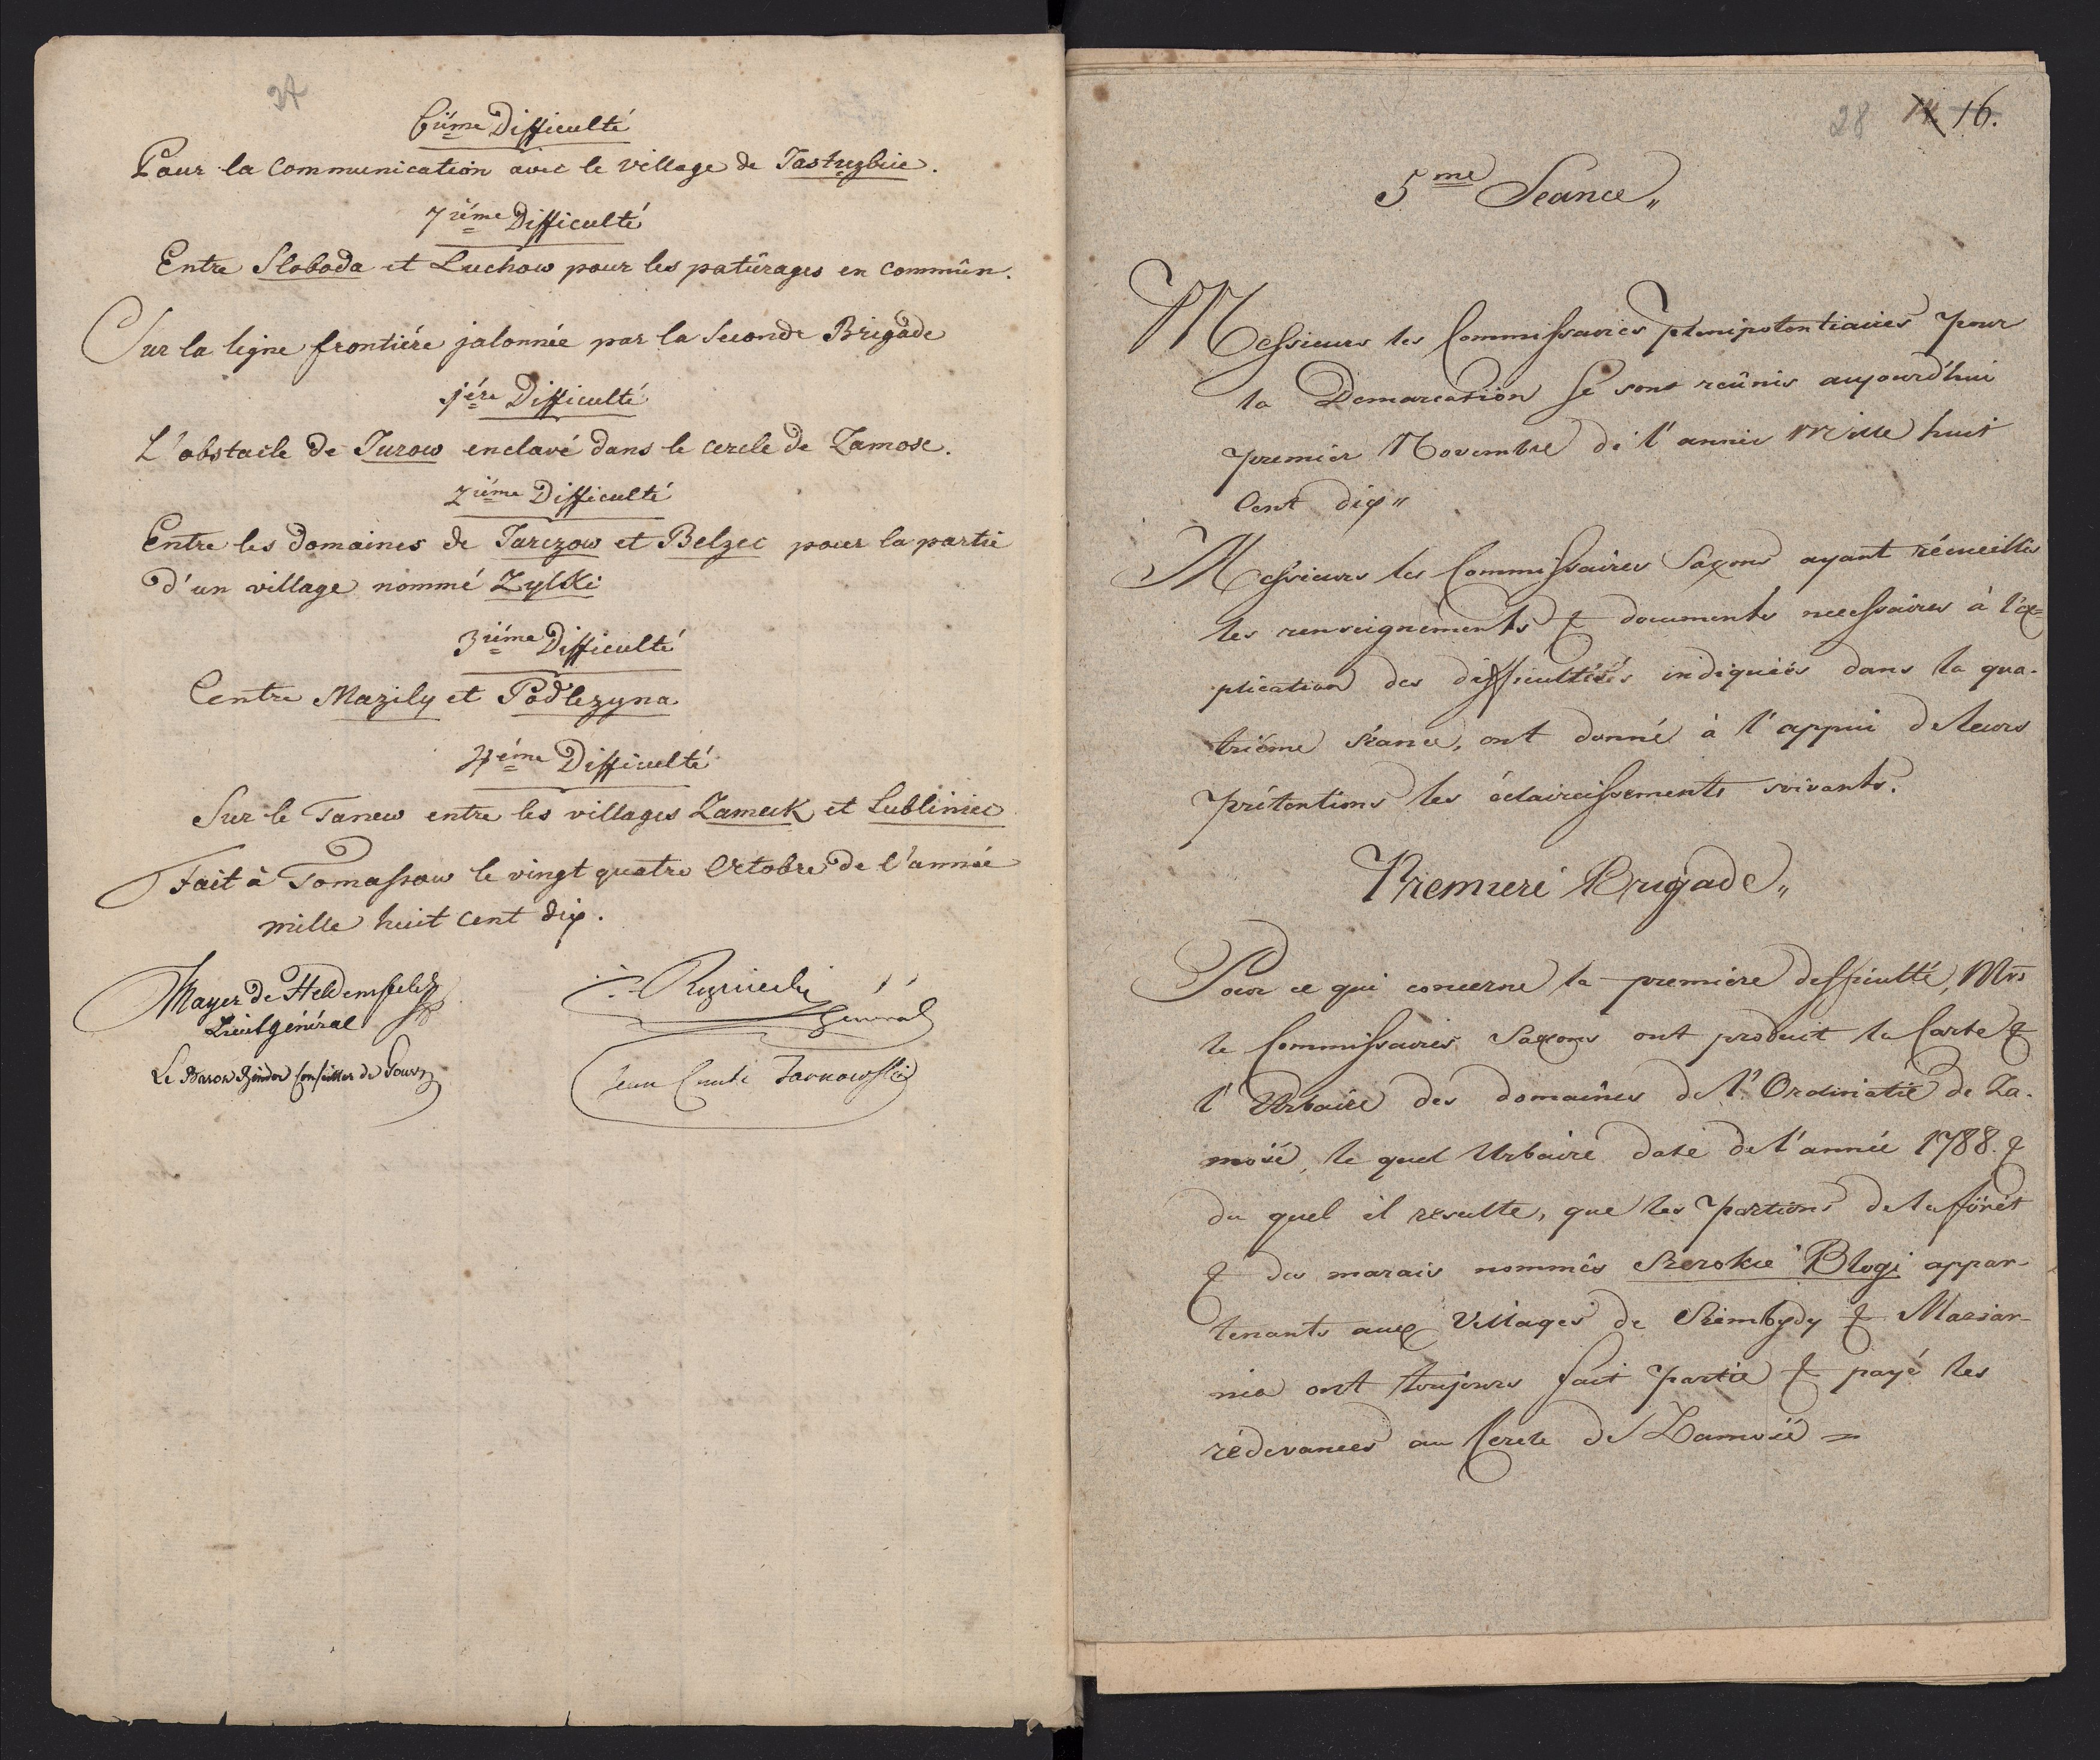 27
6iéme Difficulté
Pour la communication avec le village de Jastrzbice.
7iéme Difficulté
Entre Sloboda et Luchow pour les patûrages en commûn.
Sur la ligne frontiére jalonnée par la Seconde Brigade
1ére Difficulté
L'obstacle de Jurow enclavé dans le cercle de Zamosc.
2iéme Difficulté
Entre les domaines de Jarczow et Belzec pour la partie
d'un village nommé Zylki
3iéme Difficulté
Centre Mazily et Podlezyna
4iéme Difficulté
Sur le Tanew entre les villages Zameck et Lubliniec
Fait à Tomassow le vingt quatre Octobre de l'année
mille huit cent dix.
Mayer de Heldensfeld
Lieutgénéral
Général
Le Baron Binder Conseiller de Gouvr
Jean Comte Tarnowski
28 14 16.
5me Seance„
Messieurs les Commissaries plenipotentiaires pour
la Demarcation se sont reûnis aujourd'hui
premier Novembre de l'année Mille huit
Cent dix„
Messieurs les Commissaires Saxons ayant récueillis
les renseignéments & documents necessaires à l'ex=
plication des difficultées indiqueés dans la qua-
triéme séance, ont donné à l'appui de leurs
prétentions les éclaircissements suivants.
Premiere Brigade„
Pour ce qui concerne la premiere difficulté, Mrs
le Commissaires Saxons ont produit la Carte &
l'Urbaire des domaînes de l'Ordinatie de Za-
mosc, le quel Urbaire date de l'année 1788. &
du quel il resulte, que les portions de la fôrét
& des marais nommés Szerokie Blogi appar-
tenants aux Villages de Kimbydy & Maziar-
nia ont toujours fait partie & payé les
rédevances au Cercle de Zamosc =